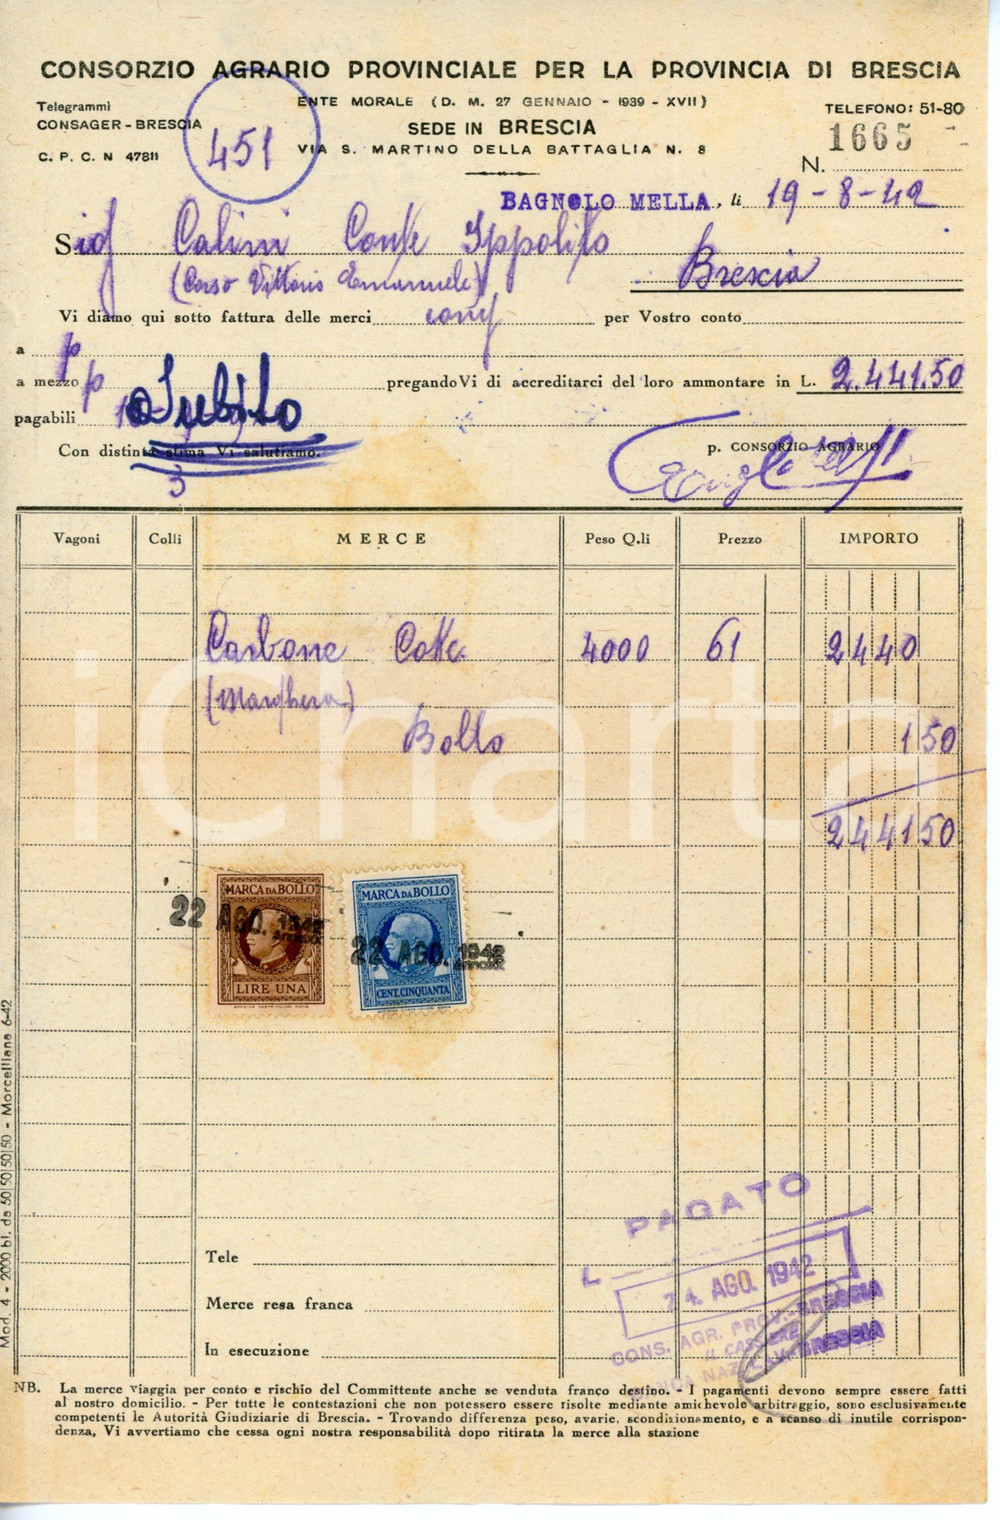 CONSORZIO AGRARIO PROVINCIALE PER LA PROVINCIA DI BRESCIA
Telegrammi
CONSAGER - BRESCIA
C. P. C. N 47811
451
ENTE MORALE (D. M. 27 GENNAIO - 1939 - XVII)
SEDE IN BRESCIA
VIA S. MARTINO DELLA BATTAGLIA N. 8
TELEFONO: 51-80
N. 1665
BAGNOLO MELLA, li 19-8-42
Sig Calini Conte Ippolito
(Corso Vittorio Emanuele) Brescia
Vi diamo qui sotto fattura delle merci per Vostro conto
a
a mezzo pregandoVi di accreditarci del loro ammontare in L. 2.441.50
pagabili Subito
Con distinta stima Vi salutiamo.
3
p. CONSORZIO AGRARIO
Vagoni Colli MERCE Peso Q.li Prezzo IMPORTO
Carbone Coke 4000 61 2440
(Marghera)
Bollo 1 50
2441 50
MARCA DA BOLLO
LIRE UNA
22 AGO. 1942
MARCA DA BOLLO
CENT. CINQUANTA
22 AGO. 1942
iCharta
PAGATO
L
24. AGO. 1942
CONS. AGR. PROV. BRESCIA
IL CASSIERE
BRESCIA
Tele
Merce resa franca
In esecuzione
Mod. 4 - 2000 bl. da 50|50|50|50 - Morcelliana 6-42
NB. La merce viaggia per conto e rischio del Committente anche se venduta franco destino. - I pagamenti devono sempre essere fatti
al nostro domicilio. - Per tutte le contestazioni che non potessero essere risolte mediante amichevole arbitraggio, sono esclusivamente
competenti le Autorità Giudiziarie di Brescia. - Trovando differenza peso, avarie, scondizionamento, e a scanso di inutile corrispon-
denza, Vi avvertiamo che cessa ogni nostra responsabilità dopo ritirata la merce alla stazione